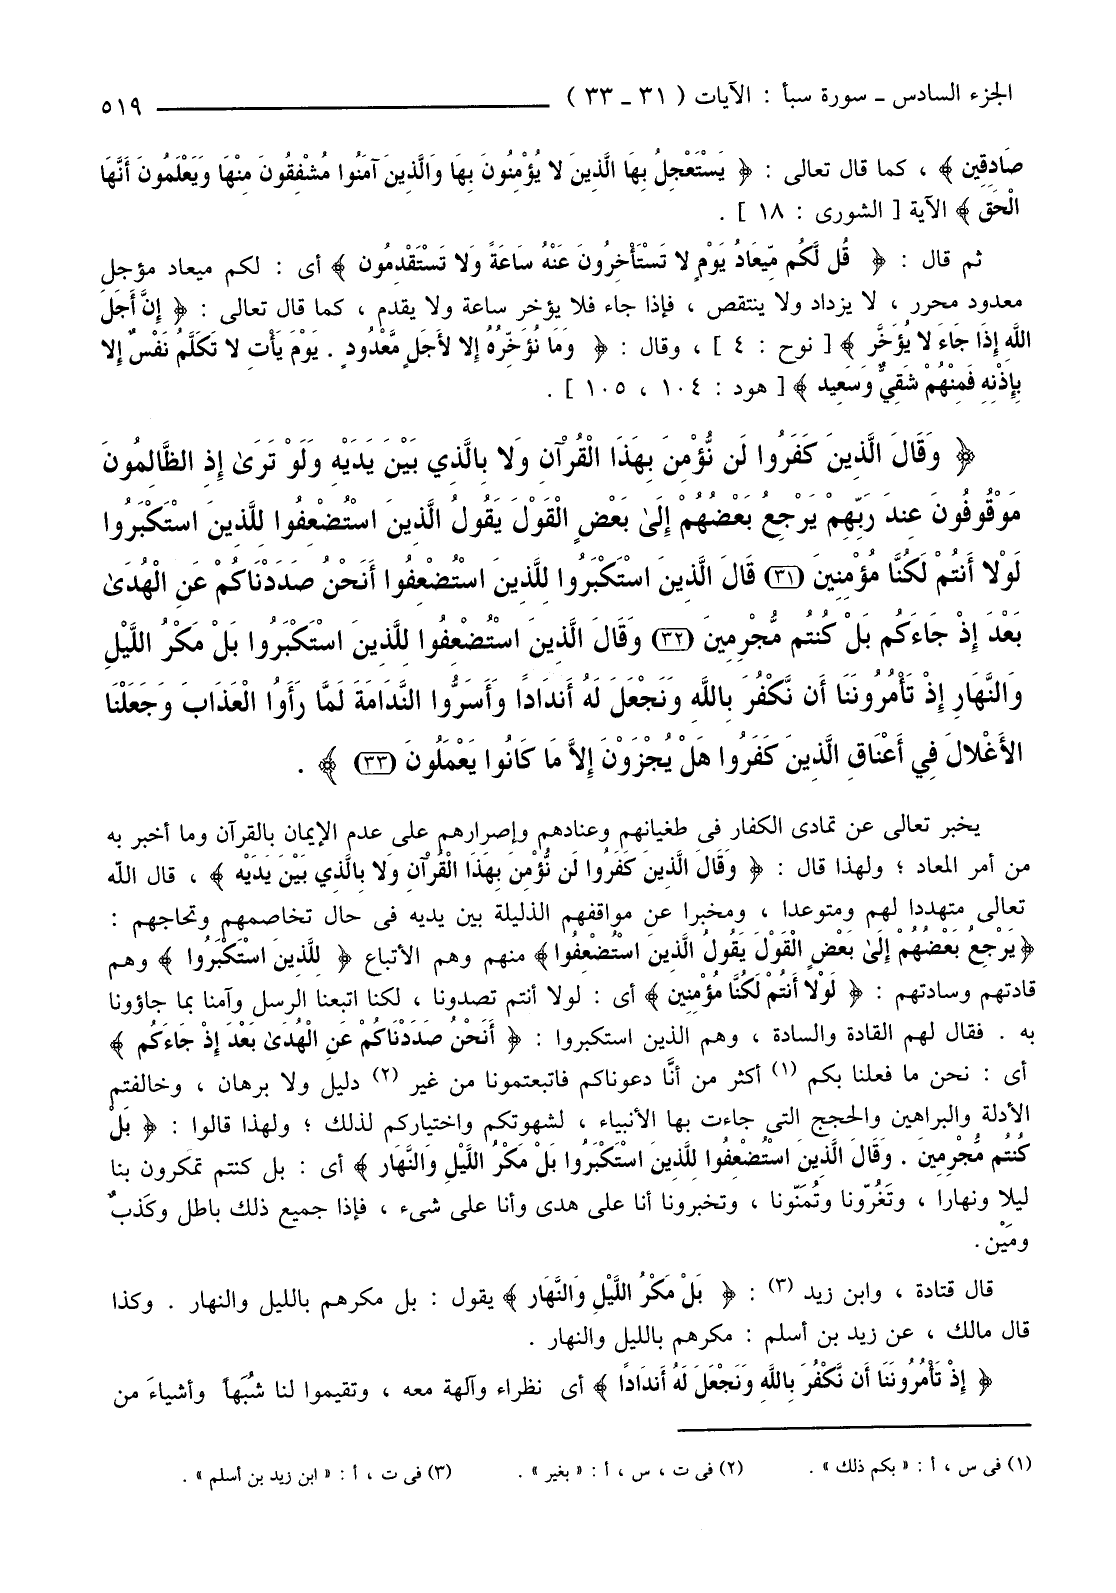 الجزء السادس ـ سورة سبأ : الآيات ( ٣١ ـ ٣٣ ) ٥١٩
صَادِقِين ﴾ ، كما قال تعالى : ﴿ يَسْتَعْجِلُ بِهَا الَّذِينَ لا يُؤْمِنُونَ بِهَا وَالَّذِينَ آمَنُوا مُشْفِقُونَ مِنْهَا وَيَعْلَمُونَ أَنَّهَا
الْحَق ﴾ الآية [ الشورى : ١٨ ] .
ثم قال : ﴿ قُل لَّكُم مِّيعَادُ يَوْمٍ لا تَسْتَأْخِرُونَ عَنْهُ سَاعَةً وَلا تَسْتَقْدِمُون ﴾ أى : لكم ميعاد مؤجل
معدود محرر ، لا يزداد ولا ينتقص ، فإذا جاء فلا يؤخر ساعة ولا يقدم ، كما قال تعالى : ﴿ إِنَّ أَجَلَ
اللَّهِ إِذَا جَاءَ لا يُؤَخَّر ﴾ [ نوح : ٤ ] ، وقال : ﴿ وَمَا نُؤَخِّرُهُ إِلا لأَجَلٍ مَّعْدُودٍ . يَوْمَ يَأْتِ لا تَكَلَّمُ نَفْسٌ إِلا
بِإِذْنِهِ فَمِنْهُمْ شَقِيٌّ وَسَعِيد ﴾ [ هود : ١٠٤ ، ١٠٥ ] .
﴿ وَقَالَ الَّذِينَ كَفَرُوا لَن نُّؤْمِنَ بِهَذَا الْقُرْآنِ وَلا بِالَّذِي بَيْنَ يَدَيْهِ وَلَوْ تَرَىٰ إِذِ الظَّالِمُونَ
مَوْقُوفُونَ عِندَ رَبِّهِمْ يَرْجِعُ بَعْضُهُمْ إِلَىٰ بَعْضٍ الْقَوْلَ يَقُولُ الَّذِينَ اسْتُضْعِفُوا لِلَّذِينَ اسْتَكْبَرُوا
لَوْلا أَنتُمْ لَكُنَّا مُؤْمِنِينَ (٣١) قَالَ الَّذِينَ اسْتَكْبَرُوا لِلَّذِينَ اسْتُضْعِفُوا أَنَحْنُ صَدَدْنَاكُمْ عَنِ الْهُدَىٰ
بَعْدَ إِذْ جَاءَكُم بَلْ كُنتُم مُّجْرِمِينَ (٣٢) وَقَالَ الَّذِينَ اسْتُضْعِفُوا لِلَّذِينَ اسْتَكْبَرُوا بَلْ مَكْرُ اللَّيْلِ
وَالنَّهَارِ إِذْ تَأْمُرُونَنَا أَن نَّكْفُرَ بِاللَّهِ وَنَجْعَلَ لَهُ أَندَادًا وَأَسَرُّوا النَّدَامَةَ لَمَّا رَأَوُا الْعَذَابَ وَجَعَلْنَا
الأَغْلالَ فِي أَعْنَاقِ الَّذِينَ كَفَرُوا هَلْ يُجْزَوْنَ إِلاَّ مَا كَانُوا يَعْمَلُونَ (٣٣) ﴾ .
يخبر تعالى عن تمادى الكفار فى طغيانهم وعنادهم وإصرارهم على عدم الإيمان بالقرآن وما أخبر به
من أمر المعاد ؛ ولهذا قال : ﴿ وَقَالَ الَّذِينَ كَفَرُوا لَن نُّؤْمِنَ بِهَذَا الْقُرْآنِ وَلا بِالَّذِي بَيْنَ يَدَيْه ﴾ ، قال الله
تعالى متهددا لهم ومتوعدا ، ومخبرا عن مواقفهم الذليلة بين يديه فى حال تخاصمهم وتحاجهم :
﴿ يَرْجِعُ بَعْضُهُمْ إِلَىٰ بَعْضٍ الْقَوْلَ يَقُولُ الَّذِينَ اسْتُضْعِفُوا﴾ منهم وهم الأتباع ﴿ لِلَّذِينَ اسْتَكْبَرُوا ﴾ وهم
قادتهم وسادتهم : ﴿ لَوْلا أَنتُمْ لَكُنَّا مُؤْمِنِين ﴾ أى : لولا أنتم تصدونا ، لكنا اتبعنا الرسل وآمنا بما جاؤونا
به . فقال لهم القادة والسادة ، وهم الذين استكبروا : ﴿ أَنَحْنُ صَدَدْنَاكُمْ عَنِ الْهُدَىٰ بَعْدَ إِذْ جَاءَكُم ﴾
أى : نحن ما فعلنا بكم (١) أكثر من أنَّا دعوناكم فاتبعتمونا من غير (٢) دليل ولا برهان ، وخالفتم
الأدلة والبراهين والحجج التى جاءت بها الأنبياء ، لشهوتكم واختياركم لذلك ؛ ولهذا قالوا : ﴿ بَلْ
كُنتُم مُّجْرِمِينَ . وَقَالَ الَّذِينَ اسْتُضْعِفُوا لِلَّذِينَ اسْتَكْبَرُوا بَلْ مَكْرُ اللَّيْلِ وَالنَّهَار ﴾ أى : بل كنتم تمكرون بنا
ليلا ونهارا ، وتَغُرّونا وتُمَنّونا ، وتخبرونا أنا على هدى وأنا على شىء ، فإذا جميع ذلك باطل وكَذبٌ
ومَيْن .
قال قتادة ، وابن زيد (٣) : ﴿ بَلْ مَكْرُ اللَّيْلِ وَالنَّهَار ﴾ يقول : بل مكرهم بالليل والنهار . وكذا
قال مالك ، عن زيد بن أسلم : مكرهم بالليل والنهار .
﴿ إِذْ تَأْمُرُونَنَا أَن نَّكْفُرَ بِاللَّهِ وَنَجْعَلَ لَهُ أَندَادًا ﴾ أى نظراء وآلهة معه ، وتقيموا لنا شُبَهاً وأشياءَ من
(١) فى س ، أ : « بكم ذلك » . (٢) فى ت ، س ، أ : « بغير » . (٣) فى ت ، أ : « ابن زيد بن أسلم » .